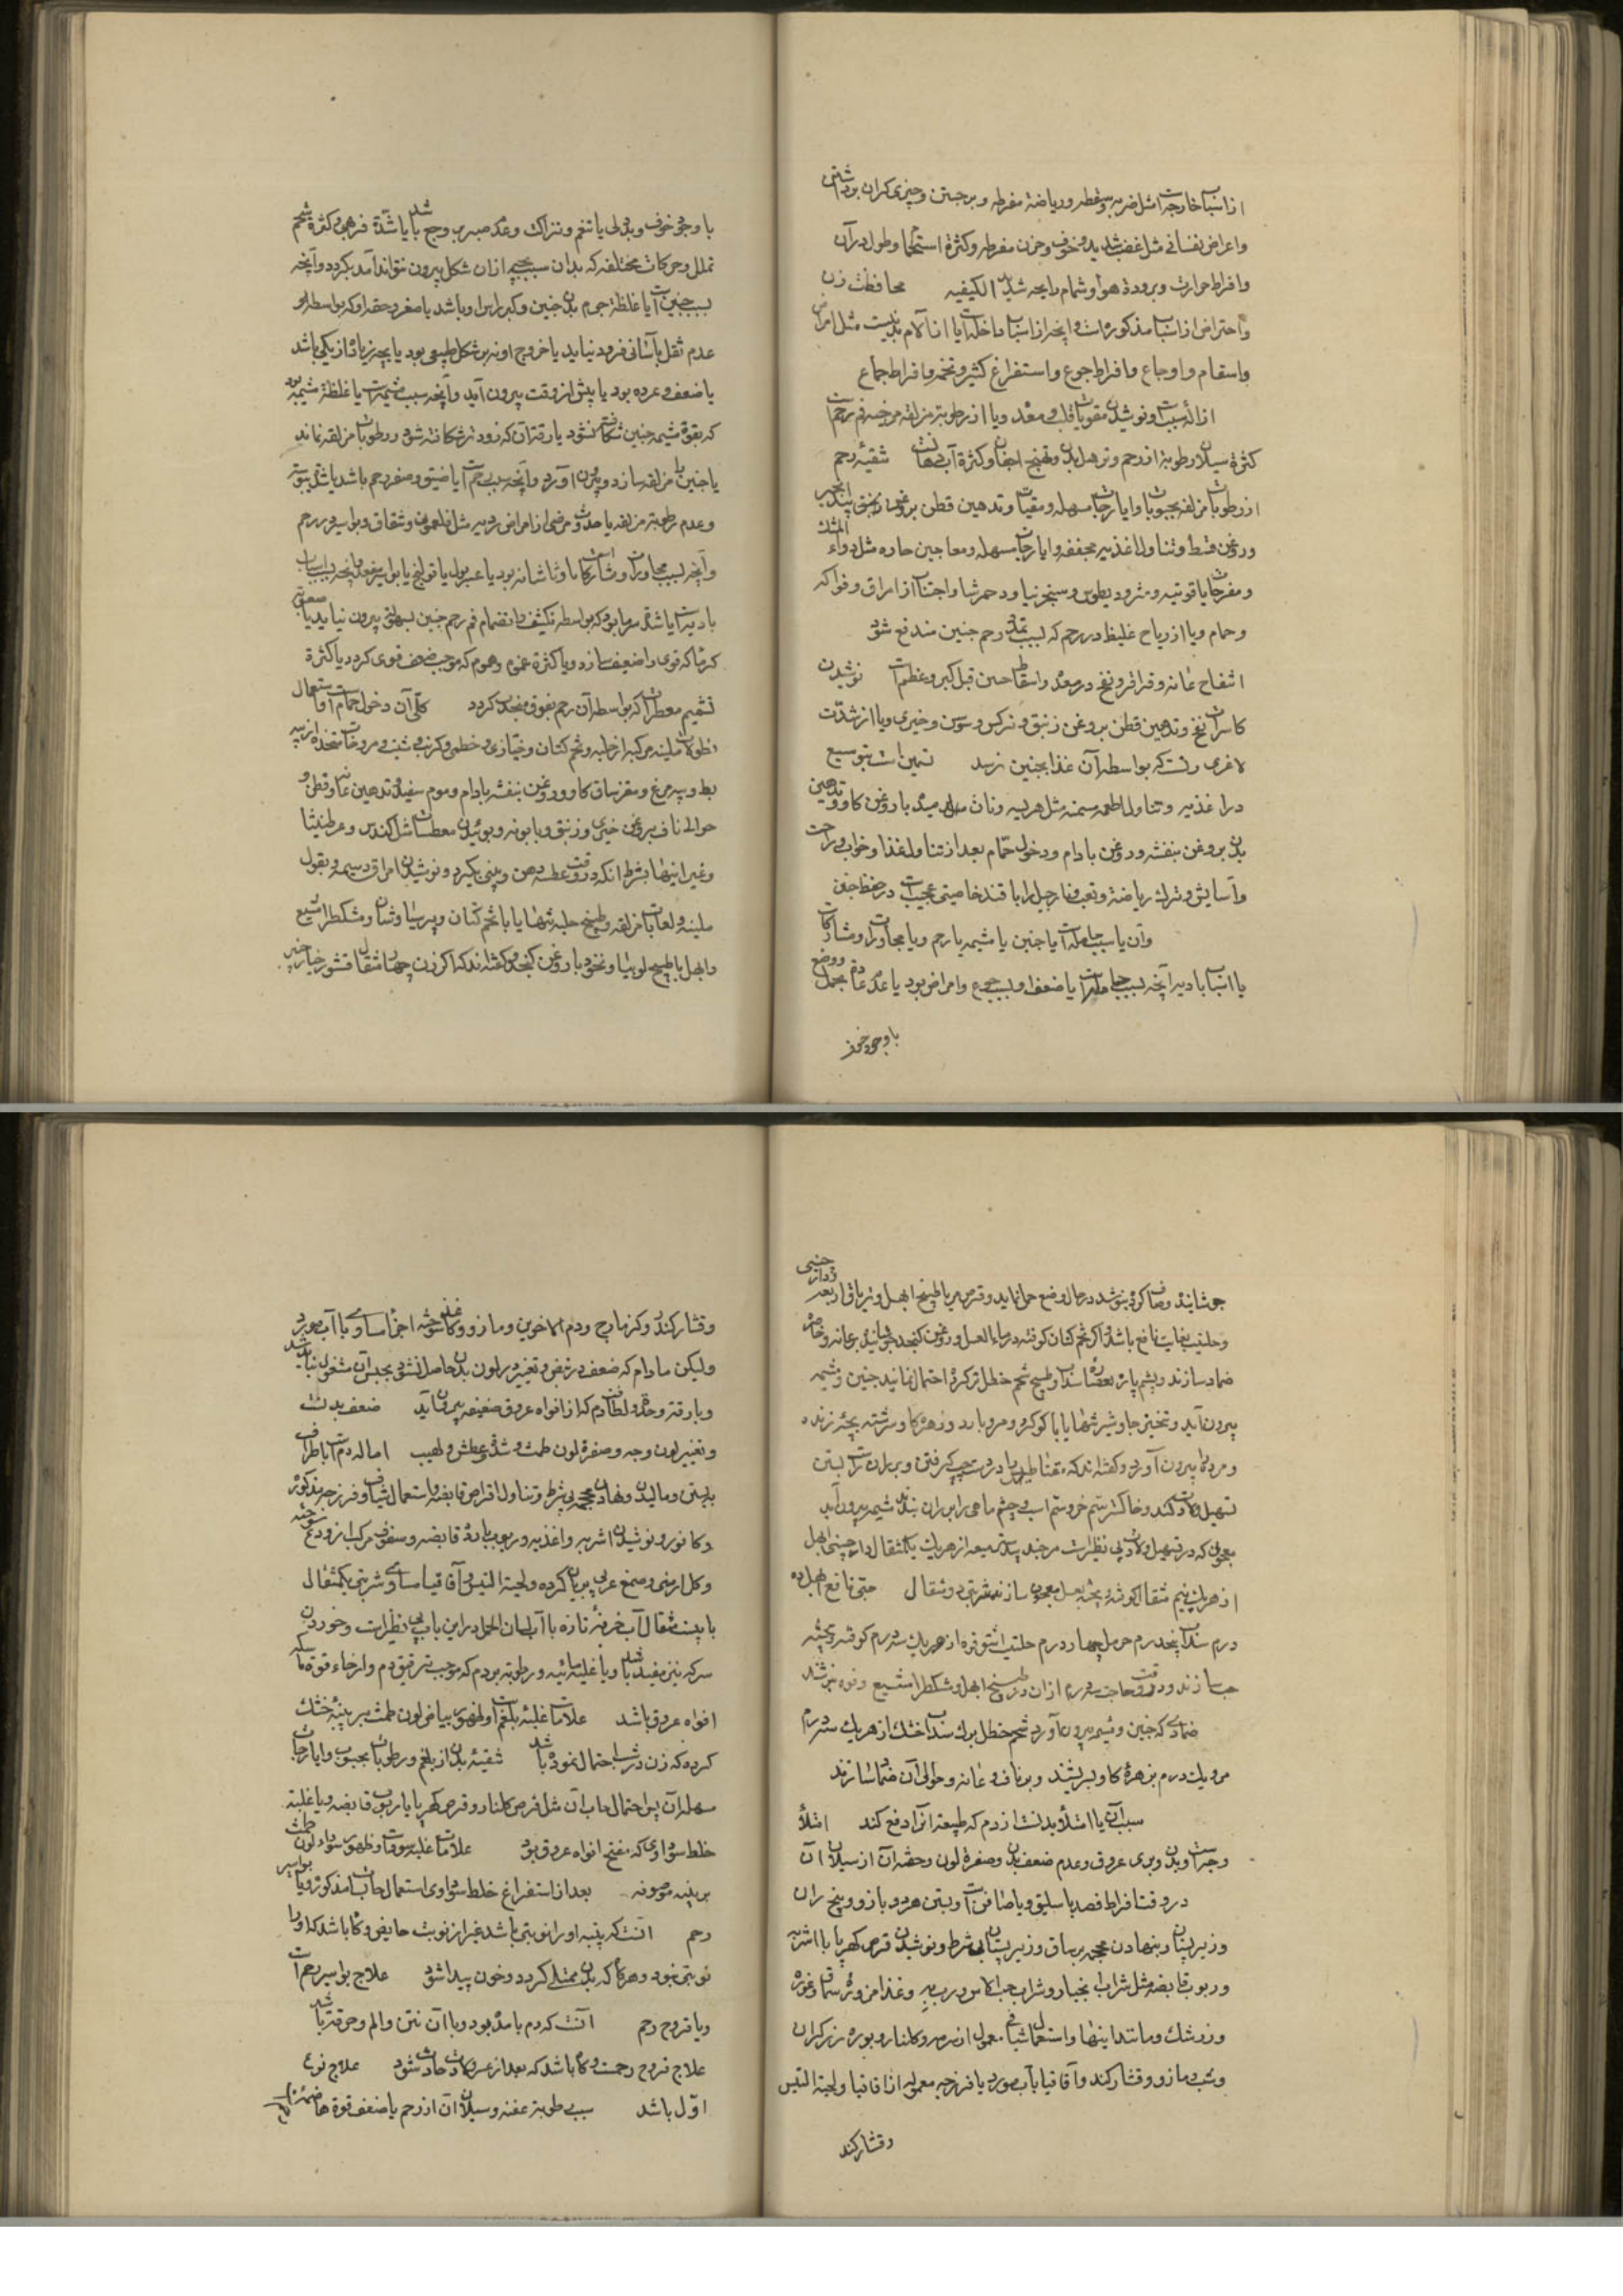 از اسباب خارجه است مثل ضربه و سقطه و ریاضة مفرطه و برجستن و چیزی کران برداشتن
واعراض نفسانی مثل غضب شدید و خوف و حزن مفرطه و کثرة استحمام و طول در آن
وافراط حرارت و برودة هوا و شمام رایحه شدید الکیفیه محافظت زن
واحتراض از اسباب مذکوره است و آنچه از اسباب داخله است یا از آلام بدنیست مثل امراض
واسقام و اوجاع و افراط جوع و استفراغ کثیر و تخمه و افراط جماع
ازالهٔ سبب است و نوشیدن مقویات قلب و معده و یا از رطوبة مزلقه مرخیه فم رحمست
کثرة سیلان رطوبة از رحم و ترهل بدن و تهبج اجفان و کثرة آب دهانست تنقیهٔ رحم
از رطوبات مزلقه بحبوبات و ایارجات مسهله و مقیات و تدهین قطن بروغن زنبق بید انجیر
وروغن قسط و تناول اغذیه مجففه و ایارجات مسهله و معاجین حاره مثل دواء المشک
ومفرحات یاقوتیه و مثرودیطوس و سنجرنیا ودحمرثا و اجتناب از امراق و فواکه
وحمام ویا از ریاح غلیظ در رحم که بسبب تمدد رحم جنین مندفع شود
انتفاخ عانه و قراقر و نفخ در معده و اسقاط حین قبل کبر و عظمست نوشیدن
کاسرات نفخ و تدهین قطن بروغن زنبق و نرکس و سوسن و خیری ویا از شدت
لاغری زنست که بواسطه آن غذا بجنین نرسد تسمین است بتوسیع
در اغذیه و تناول اطعمه مسمنه مثل هریسه و نان میده با روغن کاو و تدهین
بدن بروغن بنفشه و روغن بادام و دخول حمام بعد از تناول غذا و خواب و راحت
وآسایش و ترک ریاضة و تعب و نارجیل را با قند خاصیتی عجیب است در حفظ جنین
وآن یا بسبب حامله است یا جنین یا مشیمه یا رحم ویا مجاورات و مشارکات
یا اسباب بادیه آنچه بسبب حامله است یا ضعف او بسبب جوع و امراض بود یا عدم عادت بحمل و وضع
باوجود خوف
با وجود خوف و بددلی یا تنعم و نزاکت و عدم صبر بر وجع باشد یا شدّة فربهی و کثرة شحم
تململ و حرکات مختلفه که بدان سبب بچه از آن شکل بیرون نتواند آمد بکردد و آنچه
بسبب جنین است یا غلظة جرم بدن جنین و کبر راس او باشد یا صغر و حقه او که بواسطه او
عدم ثقل بآسانی فرود نیاید یا خروج او نه بر شکل طبیعی بود یا بچه زیاده از یکی باشد
یا ضعف و عرده بود یا پیش از وقت بیرون آید و آنچه بسبب مشیمه است یا غلظة مشیمه بود
که بقوة مشیمه جنین شکافته نشود یا رقة آن که زودتر شکافته شود و رطوبات مزلقه نماند
یا جنین را مزلقه سازد و بیرون آورد و آنچه بسبب رحم است یا ضیق و صغر رحم باشد یا شدة یبوسة
وعدم رطوبة مزلقه یا حدوث مرضی از امراض ردیه مثل فلغمونی و شقاق و بواسیر در رحم
وآنچه بسبب مجاورات و مشارکات است یا ورم مثانه بود یا عسر بول یا قولنج یا بواسیر مقعد و آنچه بسبب اسباب
بادیه است یا شدة سرما بود که بواسطه تکثیف و انضمام فم رحم جنین بسهولت بیرون نیاید یا صعوبة
کرما که قوی را ضعیف سازد ویا کثرة غموم و هموم که موجب ضعف قوی کردد یا کثرة
تشمیم معطرات که بواسطه آن رحم بفوق منجذب کردد کلی آن دخول حمام است و استعمال
نطولات ملینه مرکبه از حلبه و تخم کتان و خبازی و خطمی و کرنب و شبت و مروخات متخذه از پیه
بط و پیه مرغ و مغز ساق کاو و روغن بنفشه بادام و موم سفید و تدهین عانه و قطن و
حوالی ناف بروغن خیری و زنبق و بابونه و بوئیدن معطسات مثل کندس و عرطنیثا
وغیر اینها بشرط آنکه در وقت عطسه دهن و بینی بکیرد و نوشیدن امراق دسمه و بقول
ملینه و لعابات مزلقه و طبیخ حلبه تنها یا با تخم کتان و پرسیاوشان و مشکطرامشیع
وابهل یا طبیخ لوبیا و نخود با روغن کنجد و کفته اند که اکر زن چهار مثقال قشور خیارچنبر
جوشانیده و صاف کرده بنوشد در حال وضع حمل نماید و قرص مر با طبیخ ابهل و تریاق اربعه و دارچینی
وحلتیت بغایت نافع باشد و اکر تخم کتان کوفته در ماء العسل و روغن کنجد جوشانیده بر عانه و خاصره
ضماد سازند و پشم پاره بعصارهٔ سداب و طبیخ شحم حنظل تر کرده احتمال نمایند جنین و مشیمه
بیرون آید و تبخیر جاوشیر تنها یا با کوکرد و مر و بارزد و زهرهٔ کاو سرشته بچهٔ زنده
ومرده را بیرون آورد و کفته اند که مقناطیس را در دست چپ کرفتن و بر ران راست بستن
تسهیل ولادت کند و خاکستر سم خر و سم اسب و چشم ماهی را بر ران بندند مشیمه بیرون آید
معجونی که در تسهیل ولادت بی نظیر است مر جندبیدستر میعه از هر یک یک مثقال دارچینی ابهل
از هر یک نیم مثقال کوفته و بیخته بعسل معجون سازند شربتی دو مثقال حبی نافع ابهل ده
درم سداب پنجدرم حرمل چهار درم حلتیت اشق فوه از هر یک سه درم کوفته و بیخته
حب سازند و در وقت حاجت سه درم از آن در طبیخ ابهل و مشکطرامشیع و فوه بنوشد
ضمادی که جنین و مشیمه بیرون آورد شحم حنظل برک سداب خشک از هر یک سه درم
مر و یک درم بزهرهٔ کاو بسرشند و بر ناف و عانه و حوالی آن ضماد سازند
سبب آن یا امتلاء بدنست از دم که طبیعه آنرا دفع کند امتلأ
وجه است و بدن و پری عروق و عدم ضعف بدن و صفرة لون و حقه آن از سیلان آن
در وقت افراط فصد باسلیق ویا صافن است و بستن هر دو بازو و بیخ ران
وزیر پستان و بنهادن محجمه بر ساق و زیر پستان بی شرط و نوشیدن قرص کهربا با اشربه
وربوب قابضه مثل شراب انجبار و شراب حب الاس و رب به و غذا مزورهٔ سماق و غوره
وزرشک و مانند اینها و استعمال شیاف معمول از سرمه و کلنار و بوره زرکران
وشب و مازو و قشار کند و آقاقیا بآب مورد یا فرزجه معموله از اقاقیا و لحیة التیس
وقشار کند
وقشار کندر و کزمازج و دم الاخوین و مازو و کاغذ سوخته اجزا مساوی با آب مورد
ولیکن مادام که ضعف در نبض و تغییر در لون بدن حاصل نشود بحبس آن مشغول نباید شد
ویا رقة و حدة و لطافت دم که از افواه عروق ضعیفه بیرون آید ضعف بدنست
وتغییر لون وجه و صفرة لون طمث و شدة عطش و لهیب اماله دم است باطراف
ببستن و مالیدن و نهادن محجمه بی شرط و تناول اقراص قابضه و استعمال شیاف و فرزجه مذکوره
وکافور و نوشیدن اشربه و اغذیه و ربوب بارده قابضه و سفوف مرکب از ودع سوخته
وکل ارمنی و صمغ عربی بریان کرده و لحیة التیس و آقاقیا مساوی شربتی یکمثقال
با بیست مثقال آب خرفهٔ تازه با آب لسان الحمل در این باب بی نظیر است و خوردن
سرکه نیز مفید باشد ویا غلبهٔ مائیه و رطوبة بر دم که موجب ترقیق دم و ارخاء قوة ماسکه
افواه عروق باشد علامات غلبهٔ بلغم است و ظهور بیاض لون طمث بر پنبهٔ خشک
کرده که زن در شب احتمال نموده باشد تنقیهٔ بدن از بلغم و رطوبات بحبوب و ایارجات
مسهله آن پس احتمال حابسات آن مثل قرص کلنار و قرص کهربا با ربوب قابضه ویا غلبه
خلط سوداوی که مفتح افواه عروق بود علامات غلبهٔ سوداست و ظهور سواد لون طمث
بر پنبه موصوفه بعد از استفراغ خلط سوداوی استعمال حابسات مذکوره ویا بواسیر
رحم آنست که پنبه او را نوبتی باشد غیر از نوبت حایض و کاه باشد که او را
نوبتی نبود و هرکاه که بدن ممتلی کردد و خون پیدا شود علاج بواسیر رحم است
ویا قروح رحم آنست که دم با مده بود و با آن نتن و الم و حرقة باشد
علاج قروح رحمست و کاه باشد که بعد از عسر ولادت حادث شود علاج نوع
اوّل باشد سبب رطوبة عفنه و سیلان آن از رحم یا ضعف قوة هاضمه